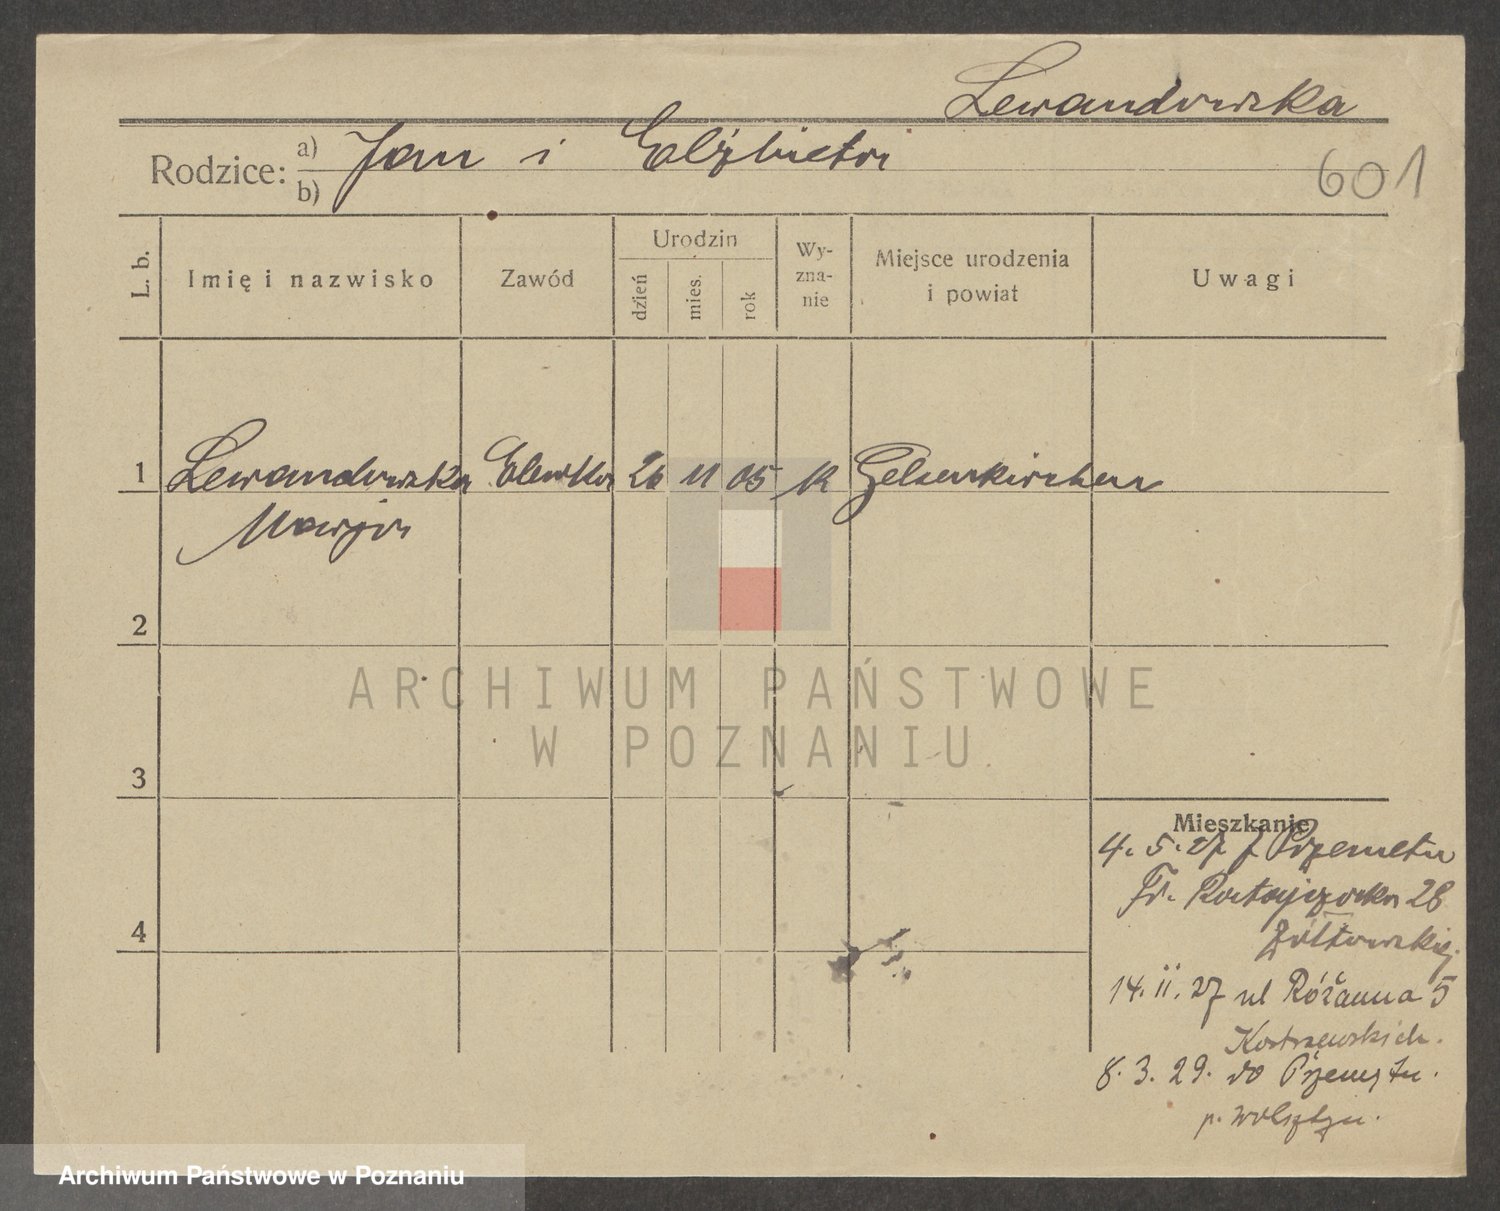 Lewandowska
Rodzice: a) Jan i Elżbieta
b)
601
L. b.
Imię i nazwisko
Zawód
Urodzin
dzień
mies.
rok
Wy-
zna-
nie
Miejsce urodzenia
i powiat
Uwagi
1 Lewandowska Elewka 26 11 05 k Gelsenkirchen
Marja
2
3
4
Mieszkanie
4. 5. 27 z Przemętu
Fr. Ratajczaka 28
Żółtowskiej.
14. ii. 27 ul Różanna 5
Kostrzewskich.
8. 3. 29. do Przemętu.
p. Wolsztyn.
ARCHIWUM PAŃSTWOWE
W POZNANIU
Archiwum Państwowe w Poznaniu